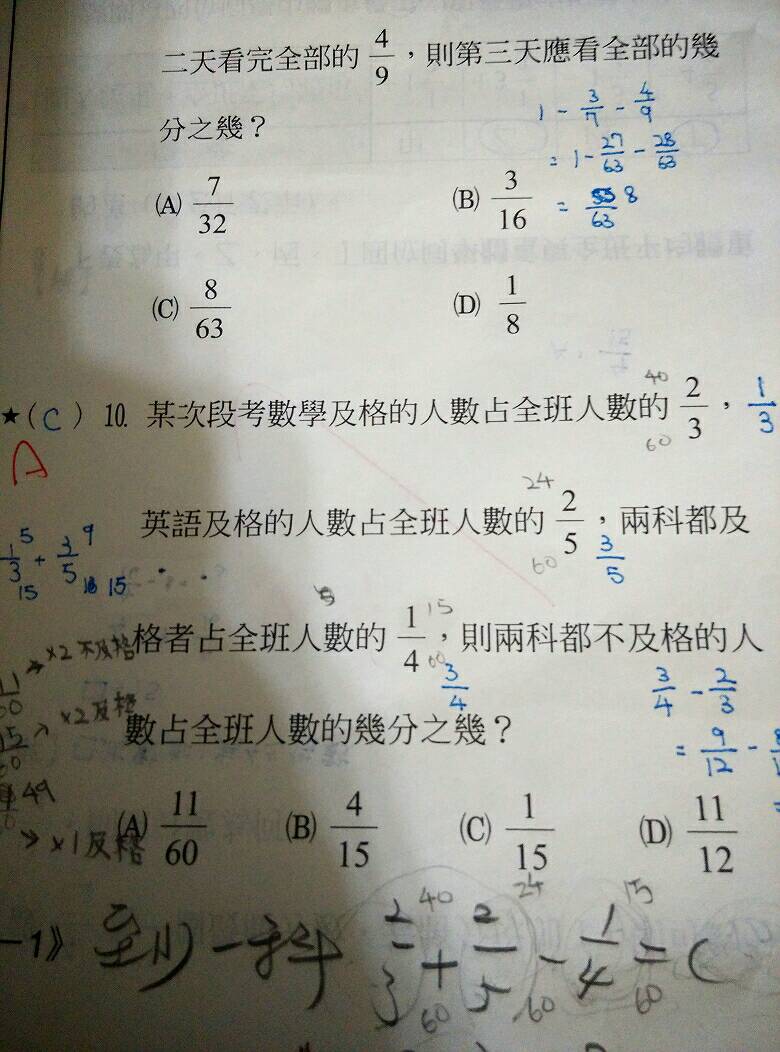 二天看完全部的 4/9，則第三天應看全部的幾
1 - 3/7 - 4/9
分之幾？
= 1 - 27/63 - 28/63
= 8/63
(A) 7/32 (B) 3/16
(C) 8/63 (D) 1/8
★( C ) 10. 某次段考數學及格的人數占全班人數的 2/3， 40 60 1/3
A
英語及格的人數占全班人數的 2/5，兩科都及 24 60 3/5
1/3 + 3/5 5 15 9 15
格者占全班人數的 1/4，則兩科都不及格的人 15 60 3/4
x2不及格
3/4 - 2/3
x2及格
數占全班人數的幾分之幾？
= 9/12 -
49
x1及格
(A) 11/60 (B) 4/15 (C) 1/15 (D) 11/12
-1》 至少一科 2/3 + 2/5 - 1/4 = 40 60 24 60 15 60